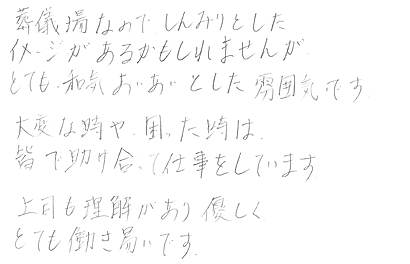 葬儀場なので しんみりとした
イメージがあるかもしれませんが
とても、和気あいあいとした 雰囲気です
大変な時や、困った時は、
皆で助け合って仕事をしています
上司も理解があり 優しく
とても 働き易いです。